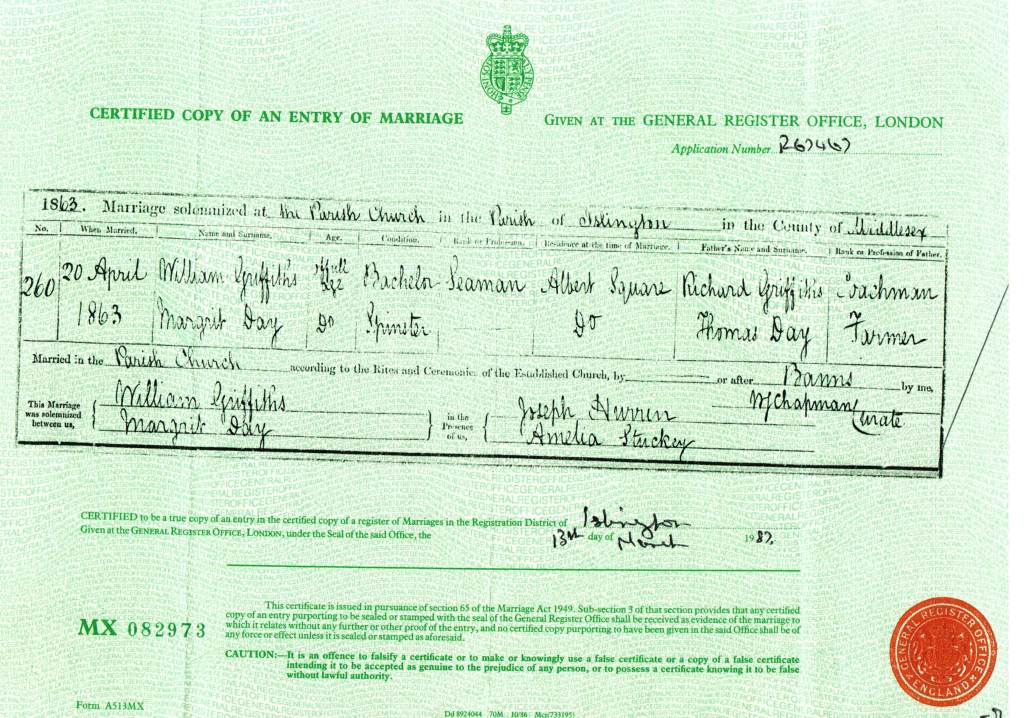 CERTIFIED COPY OF AN ENTRY OF MARRIAGE
GIVEN AT THE GENERAL REGISTER OFFICE, LONDON
Application Number R67467
1863. Marriage solemnized at the Parish Church in the Parish of Islington in the County of Middlesex
No. When Married. Name and Surname. Age. Condition. Rank or Profession. Residence at the time of Marriage. Father's Name and Surname. Rank or Profession of Father.
260 20 April William Griffiths Full Age Bachelor Seaman Albert Square Richard Griffiths Coachman
1863 Margrit Day Do Spinster Do Thomas Day Farmer
Married in the Parish Church according to the Rites and Ceremonies of the Established Church, by or after Banns by me,
This Marriage was solemnized between us, William Griffiths in the Presence of us, Joseph Hurren W Chapman
Margrit Day Amelia Stuckey Curate
CERTIFIED to be a true copy of an entry in the certified copy of a register of Marriages in the Registration District of Islington
Given at the GENERAL REGISTER OFFICE, LONDON, under the Seal of the said Office, the 13th day of March 1987.
MX 082973
This certificate is issued in pursuance of section 65 of the Marriage Act 1949. Sub-section 3 of that section provides that any certified
copy of an entry purporting to be sealed or stamped with the seal of the General Register Office shall be received as evidence of the marriage to
which it relates without any further or other proof of the entry, and no certified copy purporting to have been given in the said Office shall be of
any force or effect unless it is sealed or stamped as aforesaid.
CAUTION:—It is an offence to falsify a certificate or to make or knowingly use a false certificate or a copy of a false certificate
intending it to be accepted as genuine to the prejudice of any person, or to possess a certificate knowing it to be false
without lawful authority.
GENERAL REGISTER OFFICE
ENGLAND
Form A513MX
Dd 8924044 70M 10/86 Mcr(733195)